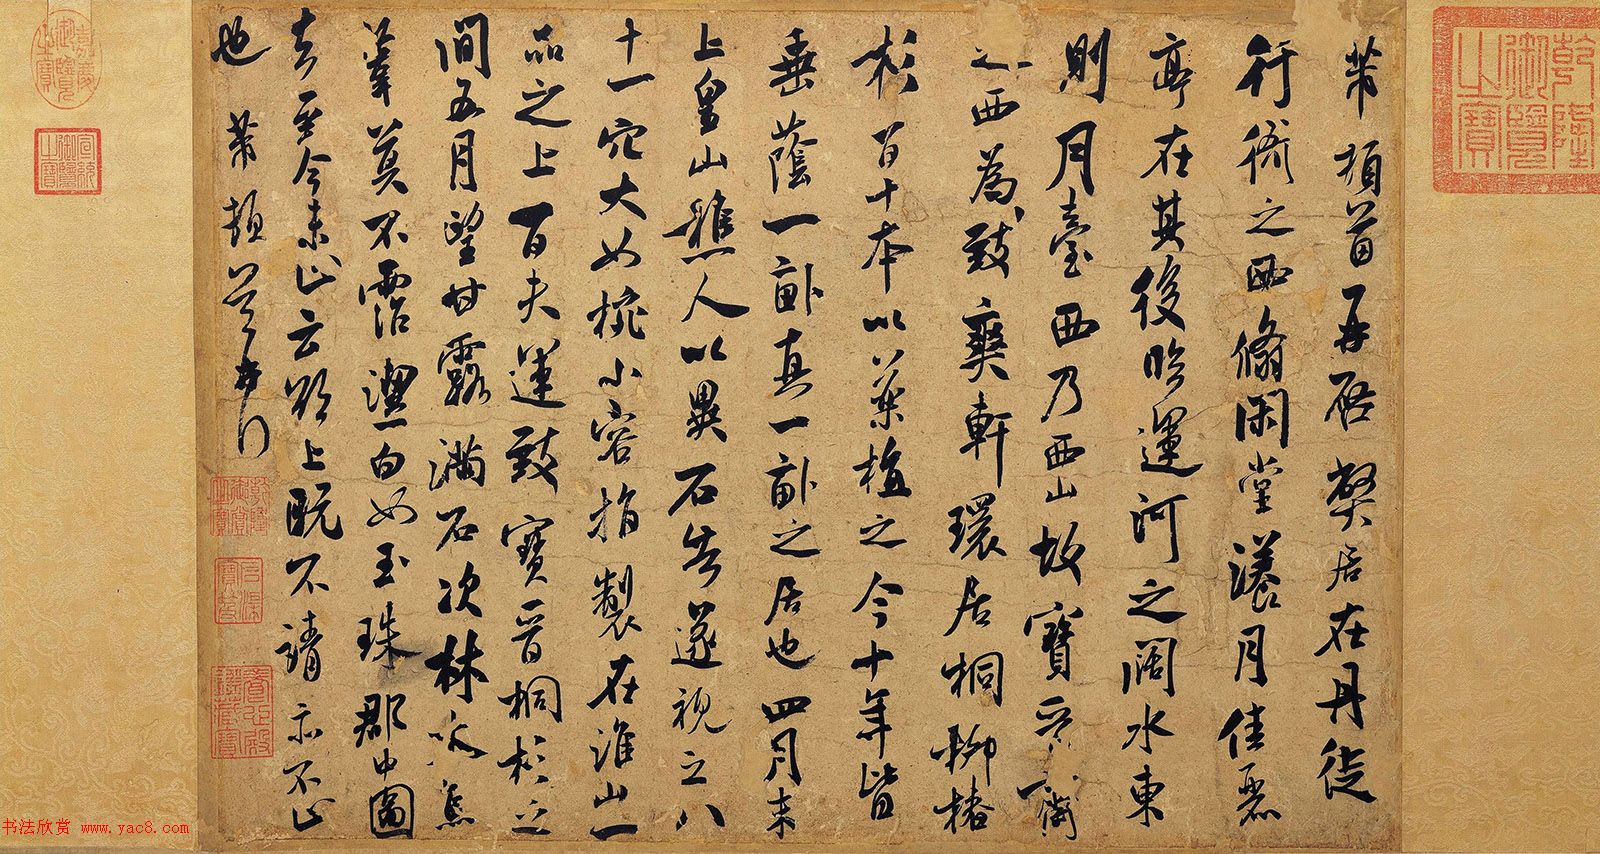 芾頓首再启弊居在丹徒
行衙之西脩閑堂漾月佳麗
亭在其後臨運河之闊水東
則月臺西乃西山故寶晉齋
之西為致爽軒環居桐柳椿
杉百十本以藥植之今十年皆
垂蔭一畝真一畝之居也四月末
上皇山樵人以異石告遂視之八
十一穴大如椀小容指製在淮山一
品之上百夫運致寶晉桐杉之
間五月望甘露滿石次林木焉
葦莫不霑濕一白如玉珠郡中圖
去至今未止云欲上既不請亦不止
也 芾頓首再拜
乾隆御覽之寶
嘉慶御覽之寶
宣統御覽之寶
石渠寶笈
养心殿鑑藏寶
书法欣赏 www.yac8.com